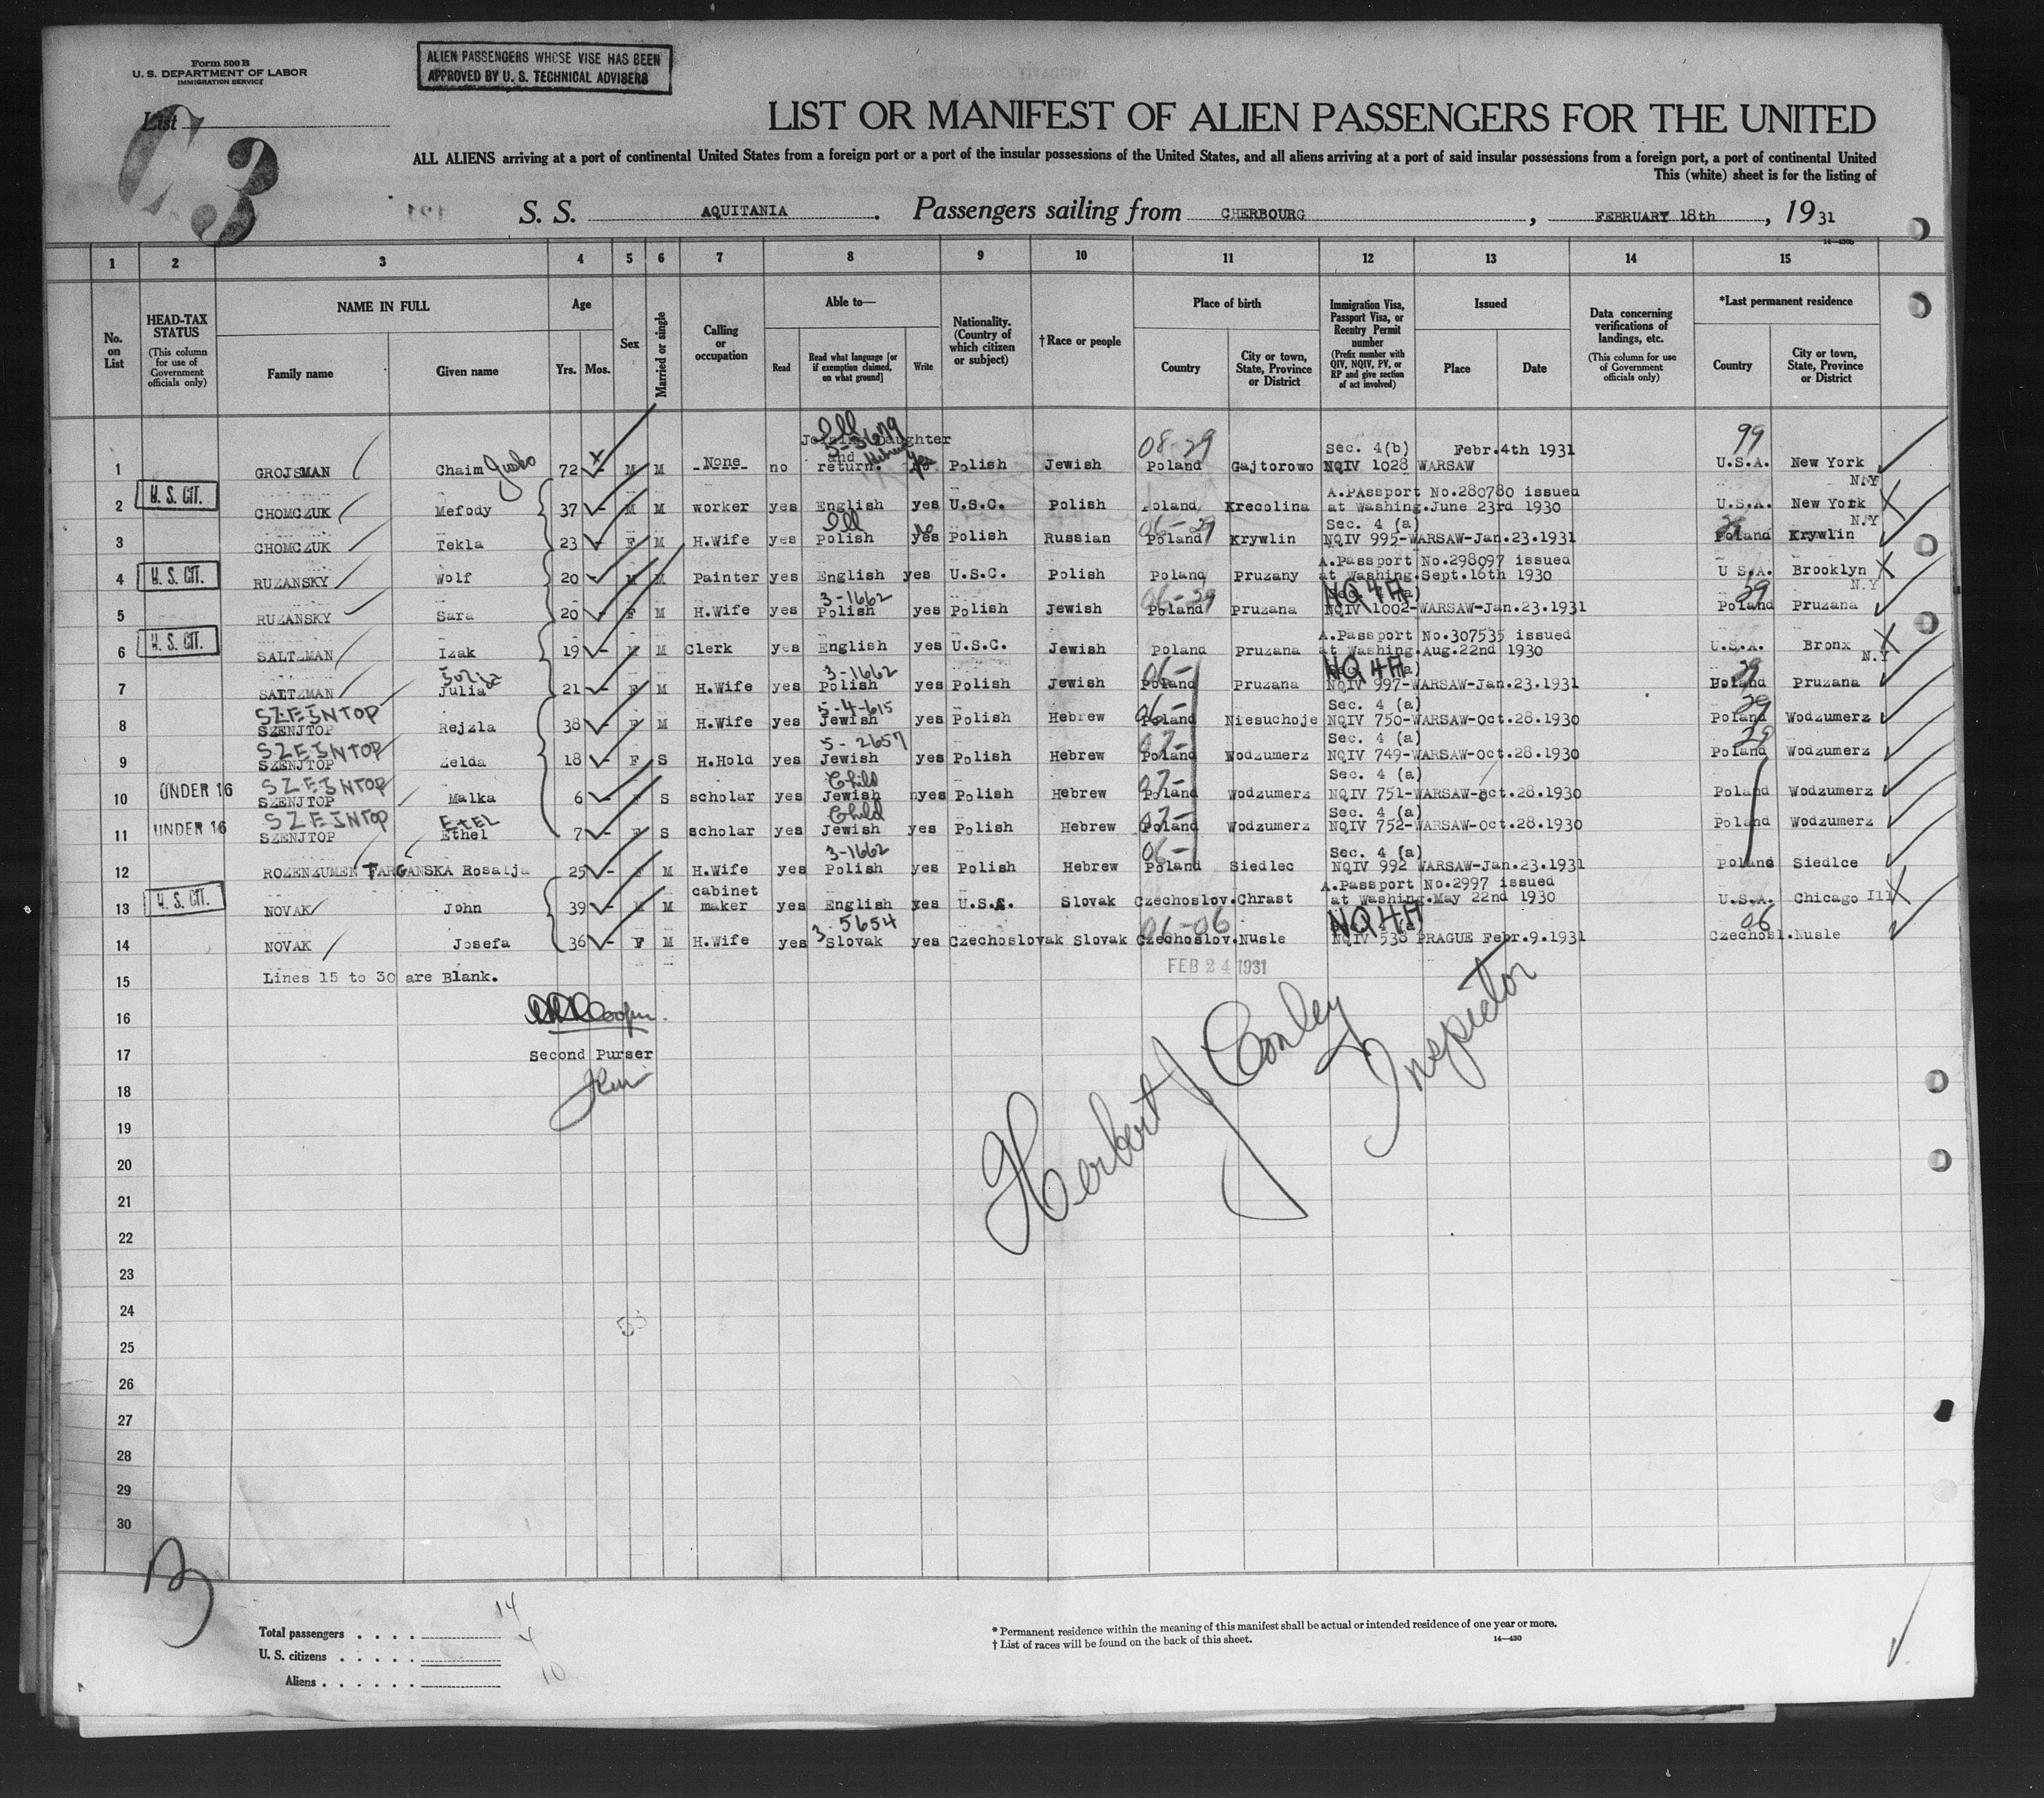 Form 500 B
U. S. DEPARTMENT OF LABOR
IMMIGRATION SERVICE
ALIEN PASSENGERS WHOSE VISE HAS BEEN
APPROVED BY U. S. TECHNICAL ADVISERS
List
3
LIST OR MANIFEST OF ALIEN PASSENGERS FOR THE UNITED
ALL ALIENS arriving at a port of continental United States from a foreign port or a port of the insular possessions of the United States, and all aliens arriving at a port of said insular possessions from a foreign port, a port of continental United
This (white) sheet is for the listing of
S. S. AQUITANIA. Passengers sailing from CHERBOURG, FEBRUARY 18th, 1931
1 2 3 4 5 6 7 8 9 10 11 12 13 14 15
No. on List
HEAD-TAX STATUS
(This column for use of Government officials only)
NAME IN FULL
Family name
Given name
Age
Yrs. Mos.
Sex
Married or single
Calling or occupation
Able to—
Read
Read what language [or if exemption claimed, on what ground]
Write
Nationality. (Country of which citizen or subject)
†Race or people
Place of birth
Country
City or town, State, Province or District
Immigration Visa, Passport Visa, or Reentry Permit number
(Prefix number with QIV, NQIV, PV, or RP and give section of act involved)
Issued
Place
Date
Data concerning verifications of landings, etc.
(This column for use of Government officials only)
*Last permanent residence
Country
City or town, State, Province or District
Joining Daughter 08-29 Sec. 4(b) Febr.4th 1931 99
1 GROJSMAN Chaim 72 M M None no and return. Polish Jewish Poland Gajtorowo NQIV 1028 WARSAW U.S.A. New York
N.Y
U. S. CIT. A.Passport No.280780 issued
2 CHOMCZUK Mefody 37 M M worker yes English yes U.S.C. Polish Poland Krecolina at Washing.June 23rd 1930 U.S.A. New York
N.Y
06-29 Sec. 4 (a)
3 CHOMCZUK Tekla 23 F M H.Wife yes Polish yes Polish Russian Poland Krywlin NQIV 995-WARSAW-Jan.23.1931 Poland Krywlin
U. S. CIT. A.Passport No.298097 issued
4 RUZANSKY Wolf 20 M M Painter yes English yes U.S.C. Polish Poland Pruzany at Washing.Sept.16th 1930 U S.A. Brooklyn
N.Y
3-1662 06-29 NQ 4A 29
5 RUZANSKY Sara 20 F M H.Wife yes Polish yes Polish Jewish Poland Pruzana NQIV 1002-WARSAW-Jan.23.1931 Poland Pruzana
U. S. CIT. A.Passport No.307535 issued
6 SALTZMAN Izak 19 M M Clerk yes English yes U.S.C. Jewish Poland Pruzana at Washing.Aug.22nd 1930 U.S.A. Bronx
N.Y
3-1662 06- NQ 4A 29
7 SALTZMAN Julia 21 F M H.Wife yes Polish yes Polish Jewish Poland Pruzana NQIV 997-WARSAW-Jan.23.1931 Poland Pruzana
SZEJNTOP 5-4-615 06- Sec. 4 (a) 29
8 SZENJTOP Rejzla 38 F M H.Wife yes Jewish yes Polish Hebrew Poland Niesuchoje NQIV 750-WARSAW-Oct.28.1930 Poland Wodzumerz
SZEJNTOP 5-2657 Sec. 4 (a) 29
9 SZENJTOP Zelda 18 F S H.Hold yes Jewish yes Polish Hebrew Poland Wodzumerz NQIV 749-WARSAW-Oct.28.1930 Poland Wodzumerz
UNDER 16 SZEJNTOP Child Sec. 4 (a)
10 SZENJTOP Malka 6 F S scholar yes Jewish nyes Polish Hebrew Poland Wodzumerz NQIV 751-WARSAW-Oct.28.1930 Poland Wodzumerz
UNDER 16 SZEJNTOP EtEL Child Sec. 4 (a)
11 SZENJTOP Ethel 7 F S scholar yes Jewish yes Polish Hebrew Poland Wodzumerz NQIV 752-WARSAW-Oct.28.1930 Poland Wodzumerz
3-1662 06- Sec. 4 (a)
12 ROZENZUMEN TARGANSKA Rosalja 25 F M H.Wife yes Polish yes Polish Hebrew Poland Siedlec NQIV 992 WARSAW-Jan.23.1931 Poland Siedlce
U. S. CIT. cabinet A.Passport No.2997 issued
13 NOVAK John 39 M M maker yes English yes U.S.C. Slovak Czechoslov.Chrast at Washing.May 22nd 1930 U.S.A. Chicago Ill
3-5654 06-06 NQ 4A 06
14 NOVAK Josefa 36 F M H.Wife yes Slovak yes Czechoslovak Slovak Czechoslov.Nusle NQIV 538 PRAGUE Febr.9.1931 Czechosl.Nusle
FEB 24 1931
15 Lines 15 to 30 are Blank.
16 Cooper
17 Second Purser
18
19
Herbert J Conley Inspector
20
21
22
23
24
25
26
27
28
29
30
B
Total passengers . . . . 14
U. S. citizens . . . . . 4
Aliens . . . . . . 10
* Permanent residence within the meaning of this manifest shall be actual or intended residence of one year or more.
† List of races will be found on the back of this sheet.
14—430